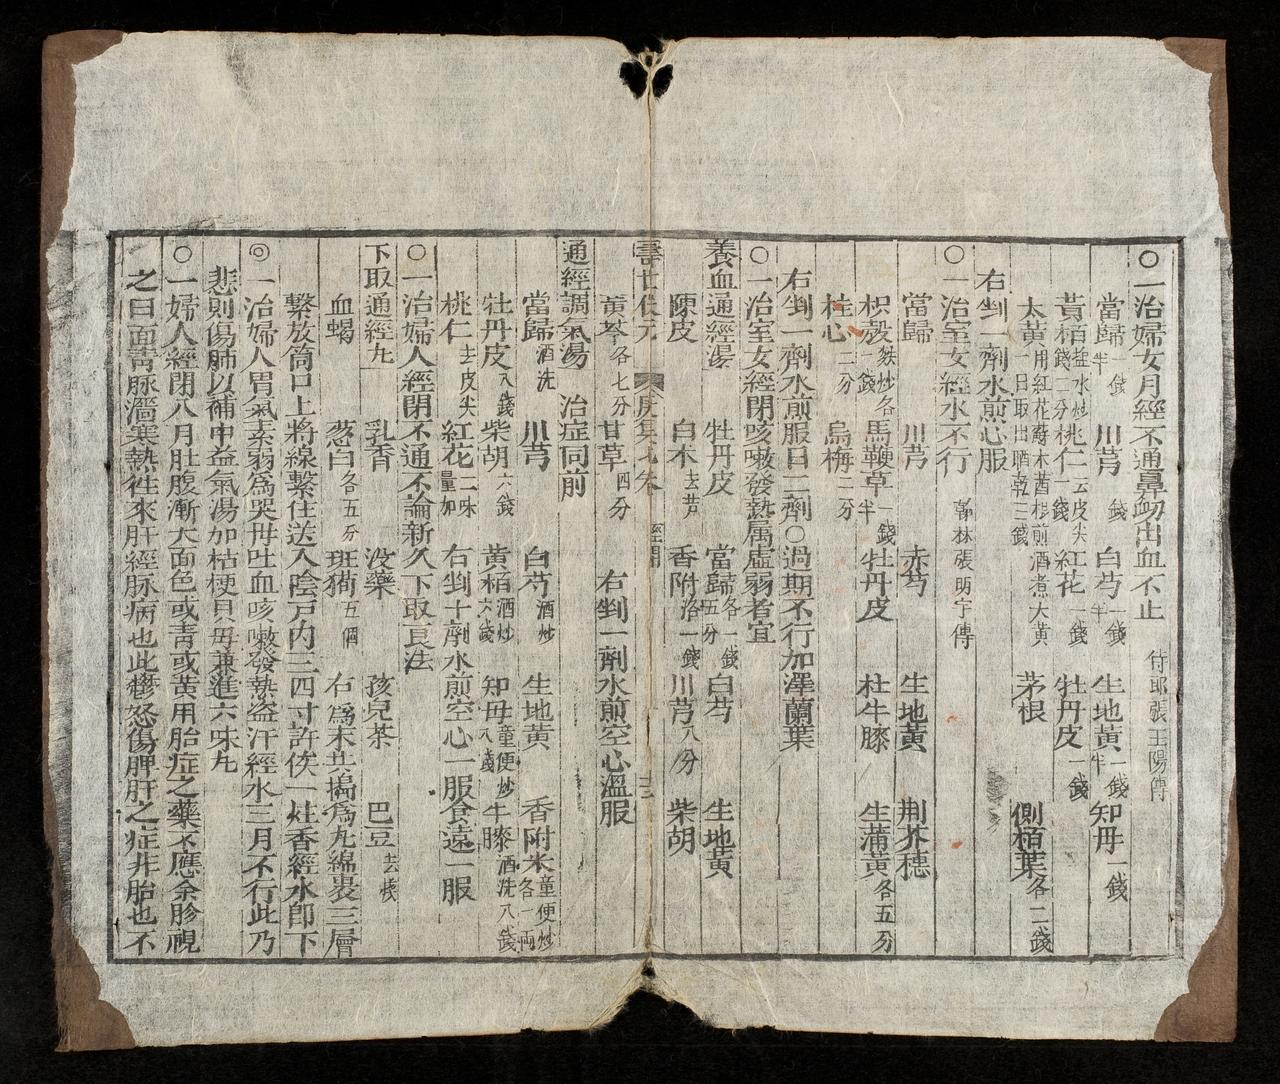 ○一治婦女月經不通鼻衂出血不止 侍郎張玉陽傳
當歸一錢半 川芎一錢 白芍一錢半 生地黃一錢半 知母一錢
黃栢塩水炒錢二分 桃仁去皮尖一錢 紅花一錢 牡丹皮一錢
太黃用紅花蘇木酋根煎酒煮大黃一日取出晒乾三錢 茅根 側栢葉各二錢
右剉一劑水煎心服
○一治室女經水不行 翰林張明宇傳
當歸 川芎 赤芍 生地黃 荆芥穗
枳殼麩炒各一錢 馬鞭草一錢半 牡丹皮 杜牛膝 生蒲黃各五分
桂心二分 烏梅二分
右剉一劑水煎服日二劑○過期不行加澤蘭葉
○一治室女經閉咳嗽發熱属虛弱者宜
養血通經湯 牡丹皮 當歸各一錢五分 白芍 生地黃
陳皮 白朮去芦 香附洛一錢 川芎八分 柴胡
壽世保元 庚集七卷 經閉
黃芩各七分 甘草四分 右剉一劑水煎空心溫服
通經調氣湯 治症同前
當歸酒洗 川芎 白芍酒炒 生地黃 香附米童便炒各一兩
牡丹皮八錢 柴胡六錢 黃栢酒炒六錢 知母童便炒八錢 牛膝酒洗八錢
桃仁去皮尖 紅花二味量加 右剉十劑水煎空心一服食遠一服
○一治婦人經閉不通不論新久下取良法
下取通經丸 乳香 沒藥 孩兒茶 巴豆去壳
血竭 葱白各五分 斑猫五個 右為末共搗為丸綿裹三層
繫放筒口上將線繫住送入陰戶內三四寸許俟一炷香經水卽下
◎一治婦人胃氣素弱爲哭母吐血咳嗽發熱盗汗經水三月不行此乃
悲則傷肺以補中益氣湯加桔梗貝母兼進六味丸
○一婦人經閉八月肚腹漸大面色或青或黃用胎症之藥不應余胗視
之曰面青脉濇寒熱徃來肝經脉病也此欝怒傷脾肝之症非胎也不